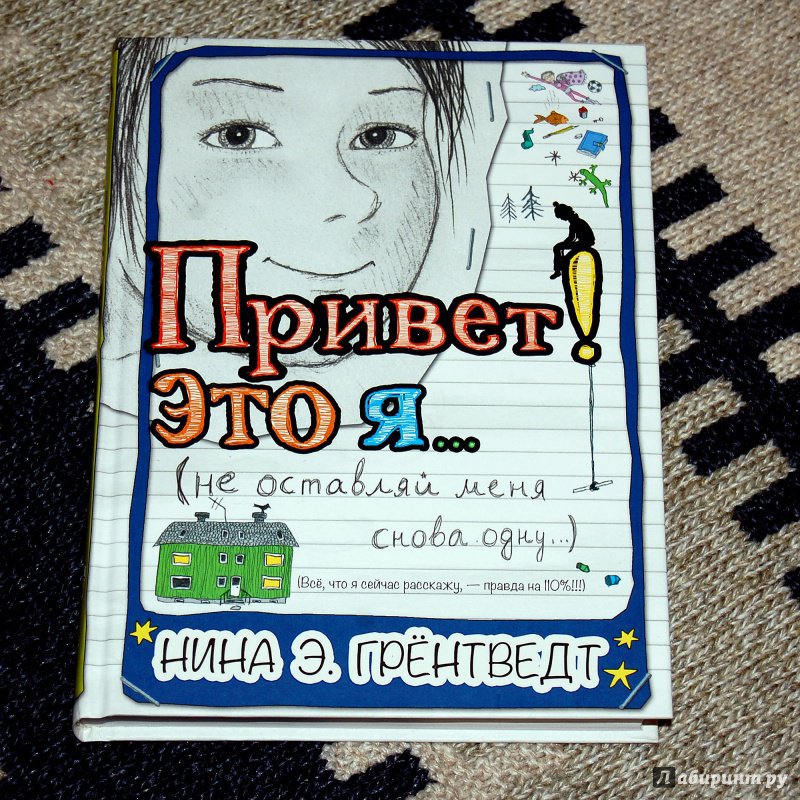 Привет!
это я...
(не оставляй меня
снова одну...)
(Всё, что я сейчас расскажу, — правда на 110%!!!)
НИНА Э. ГРЁНТВЕДТ
Лабиринт.ру